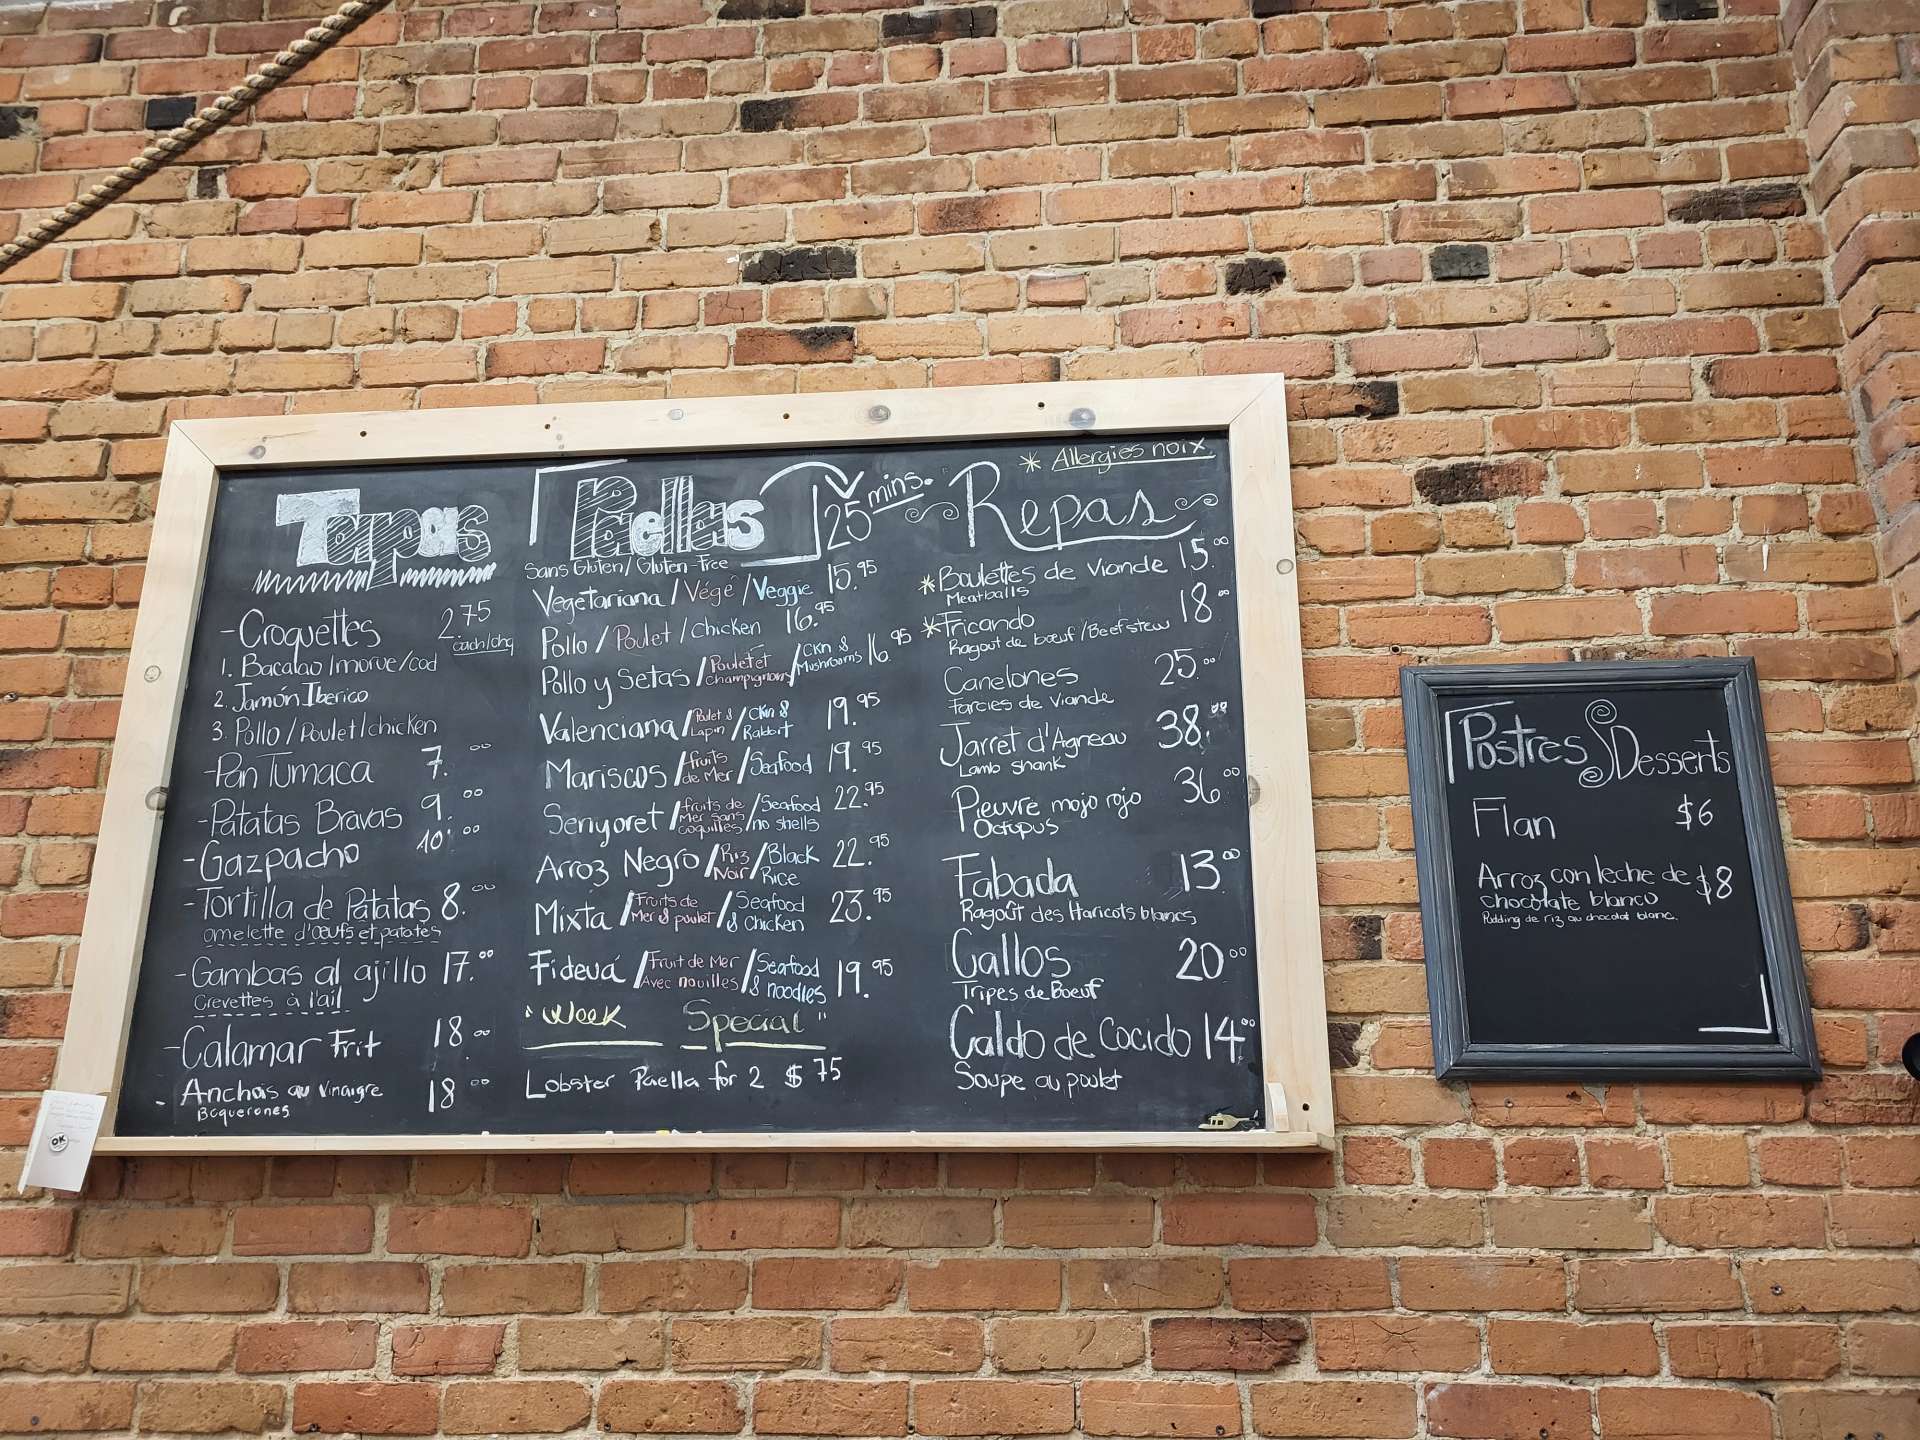 Tapas
- Croquettes 2.75
each/chq
1. Bacalao/morue/cod
2. Jamón Iberico
3. Pollo/Poulet/chicken
- Pan Tumaca 7.00
- Patatas Bravas 9.00
- Gazpacho 10.00
- Tortilla de Patatas 8.00
omelette d'œufs et patates
- Gambas al ajillo 17.00
Crevettes à l'ail
- Calamar Frit 18.00
- Anchois au vinaigre 18.00
Boquerones
Paellas 25 mins.
Sans Gluten/Gluten-Free
Vegetariana/Végé/Veggie 15.95
Pollo/Poulet/Chicken 16.95
Pollo y Setas/Poulet et Champignons/Ckn & Mushrooms 16.95
Valenciana/Poulet & Lapin/Ckn & Rabbit 19.95
Mariscos/fruits de Mer/Seafood 19.95
Senyoret/fruits de Mer sans coquilles/Seafood no shells 22.95
Arroz Negro/Riz Noir/Black Rice 22.95
Mixta/Fruits de Mer & poulet/Seafood & Chicken 23.95
Fideuá/Fruit de Mer Avec nouilles/Seafood & noodles 19.95
"Week Special"
Lobster Paella for 2 $75
* Allergies noix
Repas
* Boulettes de Viande 15.00
Meatballs
* Fricando 18.00
Ragout de bœuf/Beef stew
Canelones 25.00
Farcies de Viande
Jarret d'Agneau 38.00
Lamb Shank
Pieuvre mojo rojo 36.00
Octopus
Fabada 13.00
Ragoût des Haricots blancs
Callos 20.00
Tripes de Boeuf
Caldo de Cocido 14.00
Soupe au poulet
OK
Postres Desserts
Flan $6
Arroz con leche de $8
chocolate blanco
Pudding de riz au chocolat blanc.